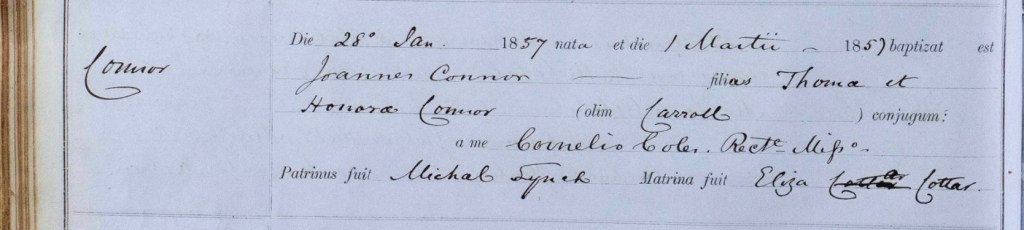 Die 28° Jan. 1857 nata et die 1 Martii 1857 baptizat est
Connor
Joannes Connor filias Thomæ et
Honoræ Connor (olim Carroll ) conjugum:
a me Cornelio Coles. Rect. Misso.
Patrinus fuit Michal Lynch Matrina fuit Eliza Cottar.